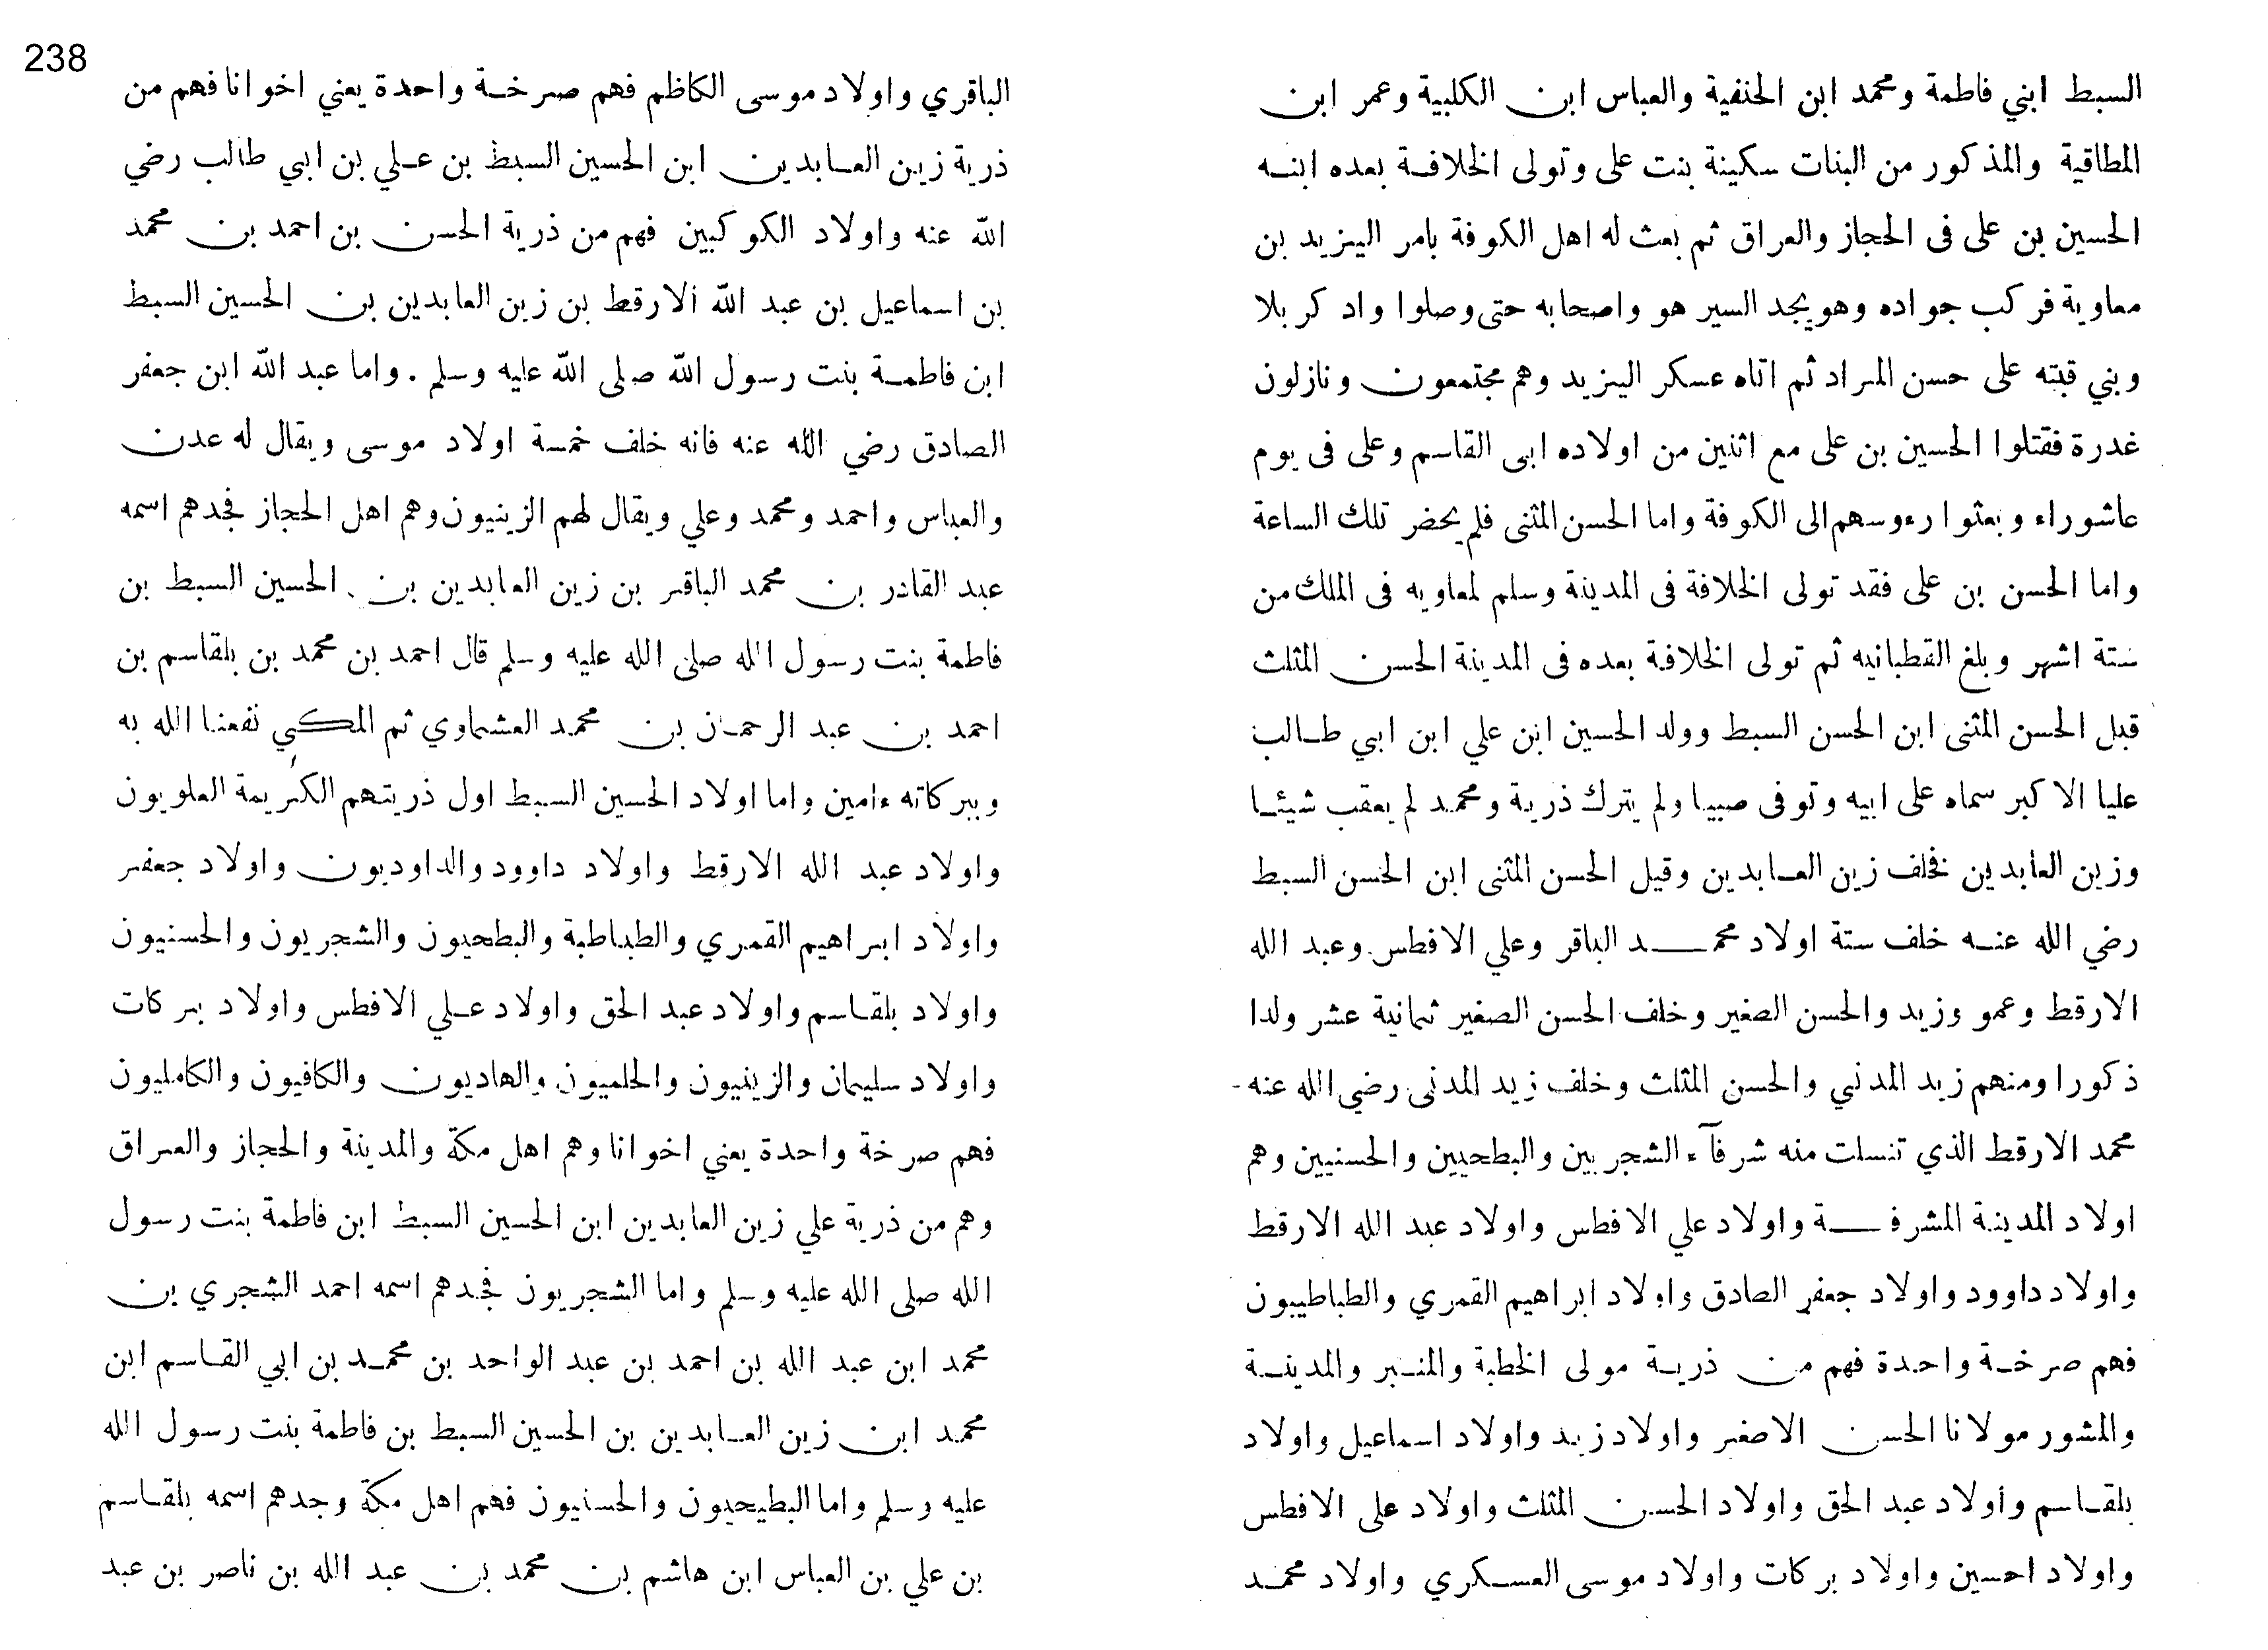 238
السبط ابني فاطمة ومحمد ابن الحنفية والعباس ابن الكلبية وعمر ابن
المطاقية والمذكور من البنات سكينة بنت على وتولى الخلافة بعده ابنه
الحسين بن على فى الحجاز والعراق ثم بعث له اهل الكوفة بامر اليزيد بن
معاوية فركب جواده وهو يجد السير هو واصحابه حتى وصلوا واد كربلا
وبني قبته على حسن المراد ثم اتاه عسكر اليزيد وهم مجتمعون ونازلون
غدرة فقتلوا الحسين بن على مع اثنين من اولاده ابى القاسم وعلى فى يوم
عاشوراء وبعثوا رءوسهم الى الكوفة واما الحسن المثنى فلم يحضر تلك الساعة
واما الحسن بن على فقد تولى الخلافة فى المدينة وسلم لمعاويه فى الملك من
ستة اشهر وبلغ القطبانيه ثم تولى الخلافة بعده فى المدينة الحسن المثلث
قبل الحسن المثنى ابن الحسن السبط وولد الحسين ابن علي ابن ابي طالب
عليا الاكبر سماه على ابيه وتوفى صبيا ولم يترك ذرية ومحمد لم يعقب شيئا
وزين العابدين فخلف زين العابدين وقيل الحسن المثنى ابن الحسن السبط
رضي الله عنه خلف ستة اولاد محمد الباقر وعلي الافطس وعبد الله
الارقط وعمو وزيد والحسن الصغير وخلف الحسن الصغير ثمانية عشر ولدا
ذكورا ومنهم زيد المدني والحسن المثلث وخلف زيد المدنى رضي الله عنه
محمد الارقط الذي تنسلت منه شرفآء الشجريين والبطحيين والحسنيين وهم
اولاد المدينة المشرفة واولاد علي الافطس واولاد عبد الله الارقط
واولاد داوود واولاد جعفر الصادق واولاد ابراهيم القمري والطباطيبون
فهم صرخة واحدة فهم من ذرية مولى الخطبة والمنبر والمدينة
والمشور مولانا الحسن الاصغر واولاد زيد واولاد اسماعيل واولاد
بلقاسم واولاد عبد الحق واولاد الحسن المثلث واولاد على الافطس
واولاد احسين واولاد بركات واولاد موسى العسكري واولاد محمد
الباقري واولاد موسى الكاظم فهم صرخة واحدة يعني اخوانا فهم من
ذرية زين العابدين ابن الحسين السبط بن علي بن ابي طالب رضي
الله عنه واولاد الكوكبين فهم من ذرية الحسن بن احمد بن محمد
بن اسماعيل بن عبد الله الارقط بن زين العابدين بن الحسين السبط
ابن فاطمة بنت رسول الله صلى الله عليه وسلم . واما عبد الله ابن جعفر
الصادق رضي الله عنه فانه خلف خمسة اولاد موسى ويقال له عدن
والعباس واحمد ومحمد وعلي ويقال لهم الزينيون وهم اهل الحجاز فجدهم اسمه
عبد القادر بن محمد الباقر بن زين العابدين بن الحسين السبط بن
فاطمة بنت رسول الله صلى الله عليه وسلم قال احمد بن محمد بن بلقاسم بن
احمد بن عبد الرحمان بن محمد العشماوي ثم المكي نفعنا الله به
وببركاته ءامين واما اولاد الحسين السبط اول ذريتهم الكريمة العلويون
واولاد عبد الله الارقط واولاد داوود والداوديون واولاد جعفر
واولاد ابراهيم القمري والطباطبة والبطحيون والشجريون والحسنيون
واولاد بلقاسم واولاد عبد الحق واولاد علي الافطس واولاد بركات
واولاد سليمان والزينيون والحلميون والهاديون والكافيون والكامليون
فهم صرخة واحدة يعني اخوانا وهم اهل مكة والمدينة والحجاز والعراق
وهم من ذرية علي زين العابدين ابن الحسين السبط ابن فاطمة بنت رسول
الله صلى الله عليه وسلم واما الشجريون فجدهم اسمه احمد الشجري بن
محمد ابن عبد الله بن احمد بن عبد الواحد بن محمد بن ابي القاسم ابن
محمد ابن زين العابدين بن الحسين السبط بن فاطمة بنت رسول الله
عليه وسلم واما البطيحيون والحسنيون فهم اهل مكة وجدهم اسمه بلقاسم
بن علي بن العباس ابن هاشم بن محمد بن عبد الله بن ناصر بن عبد